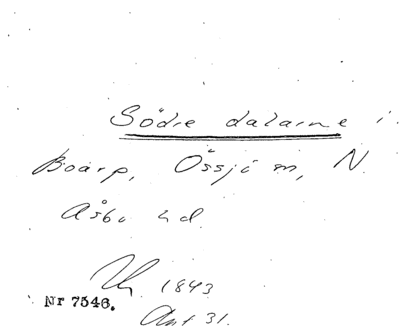 Södre dalarne i
Boarp, Össjö m, N.
Åsbo hd.
1843
Nr 7546.
Ant 31.